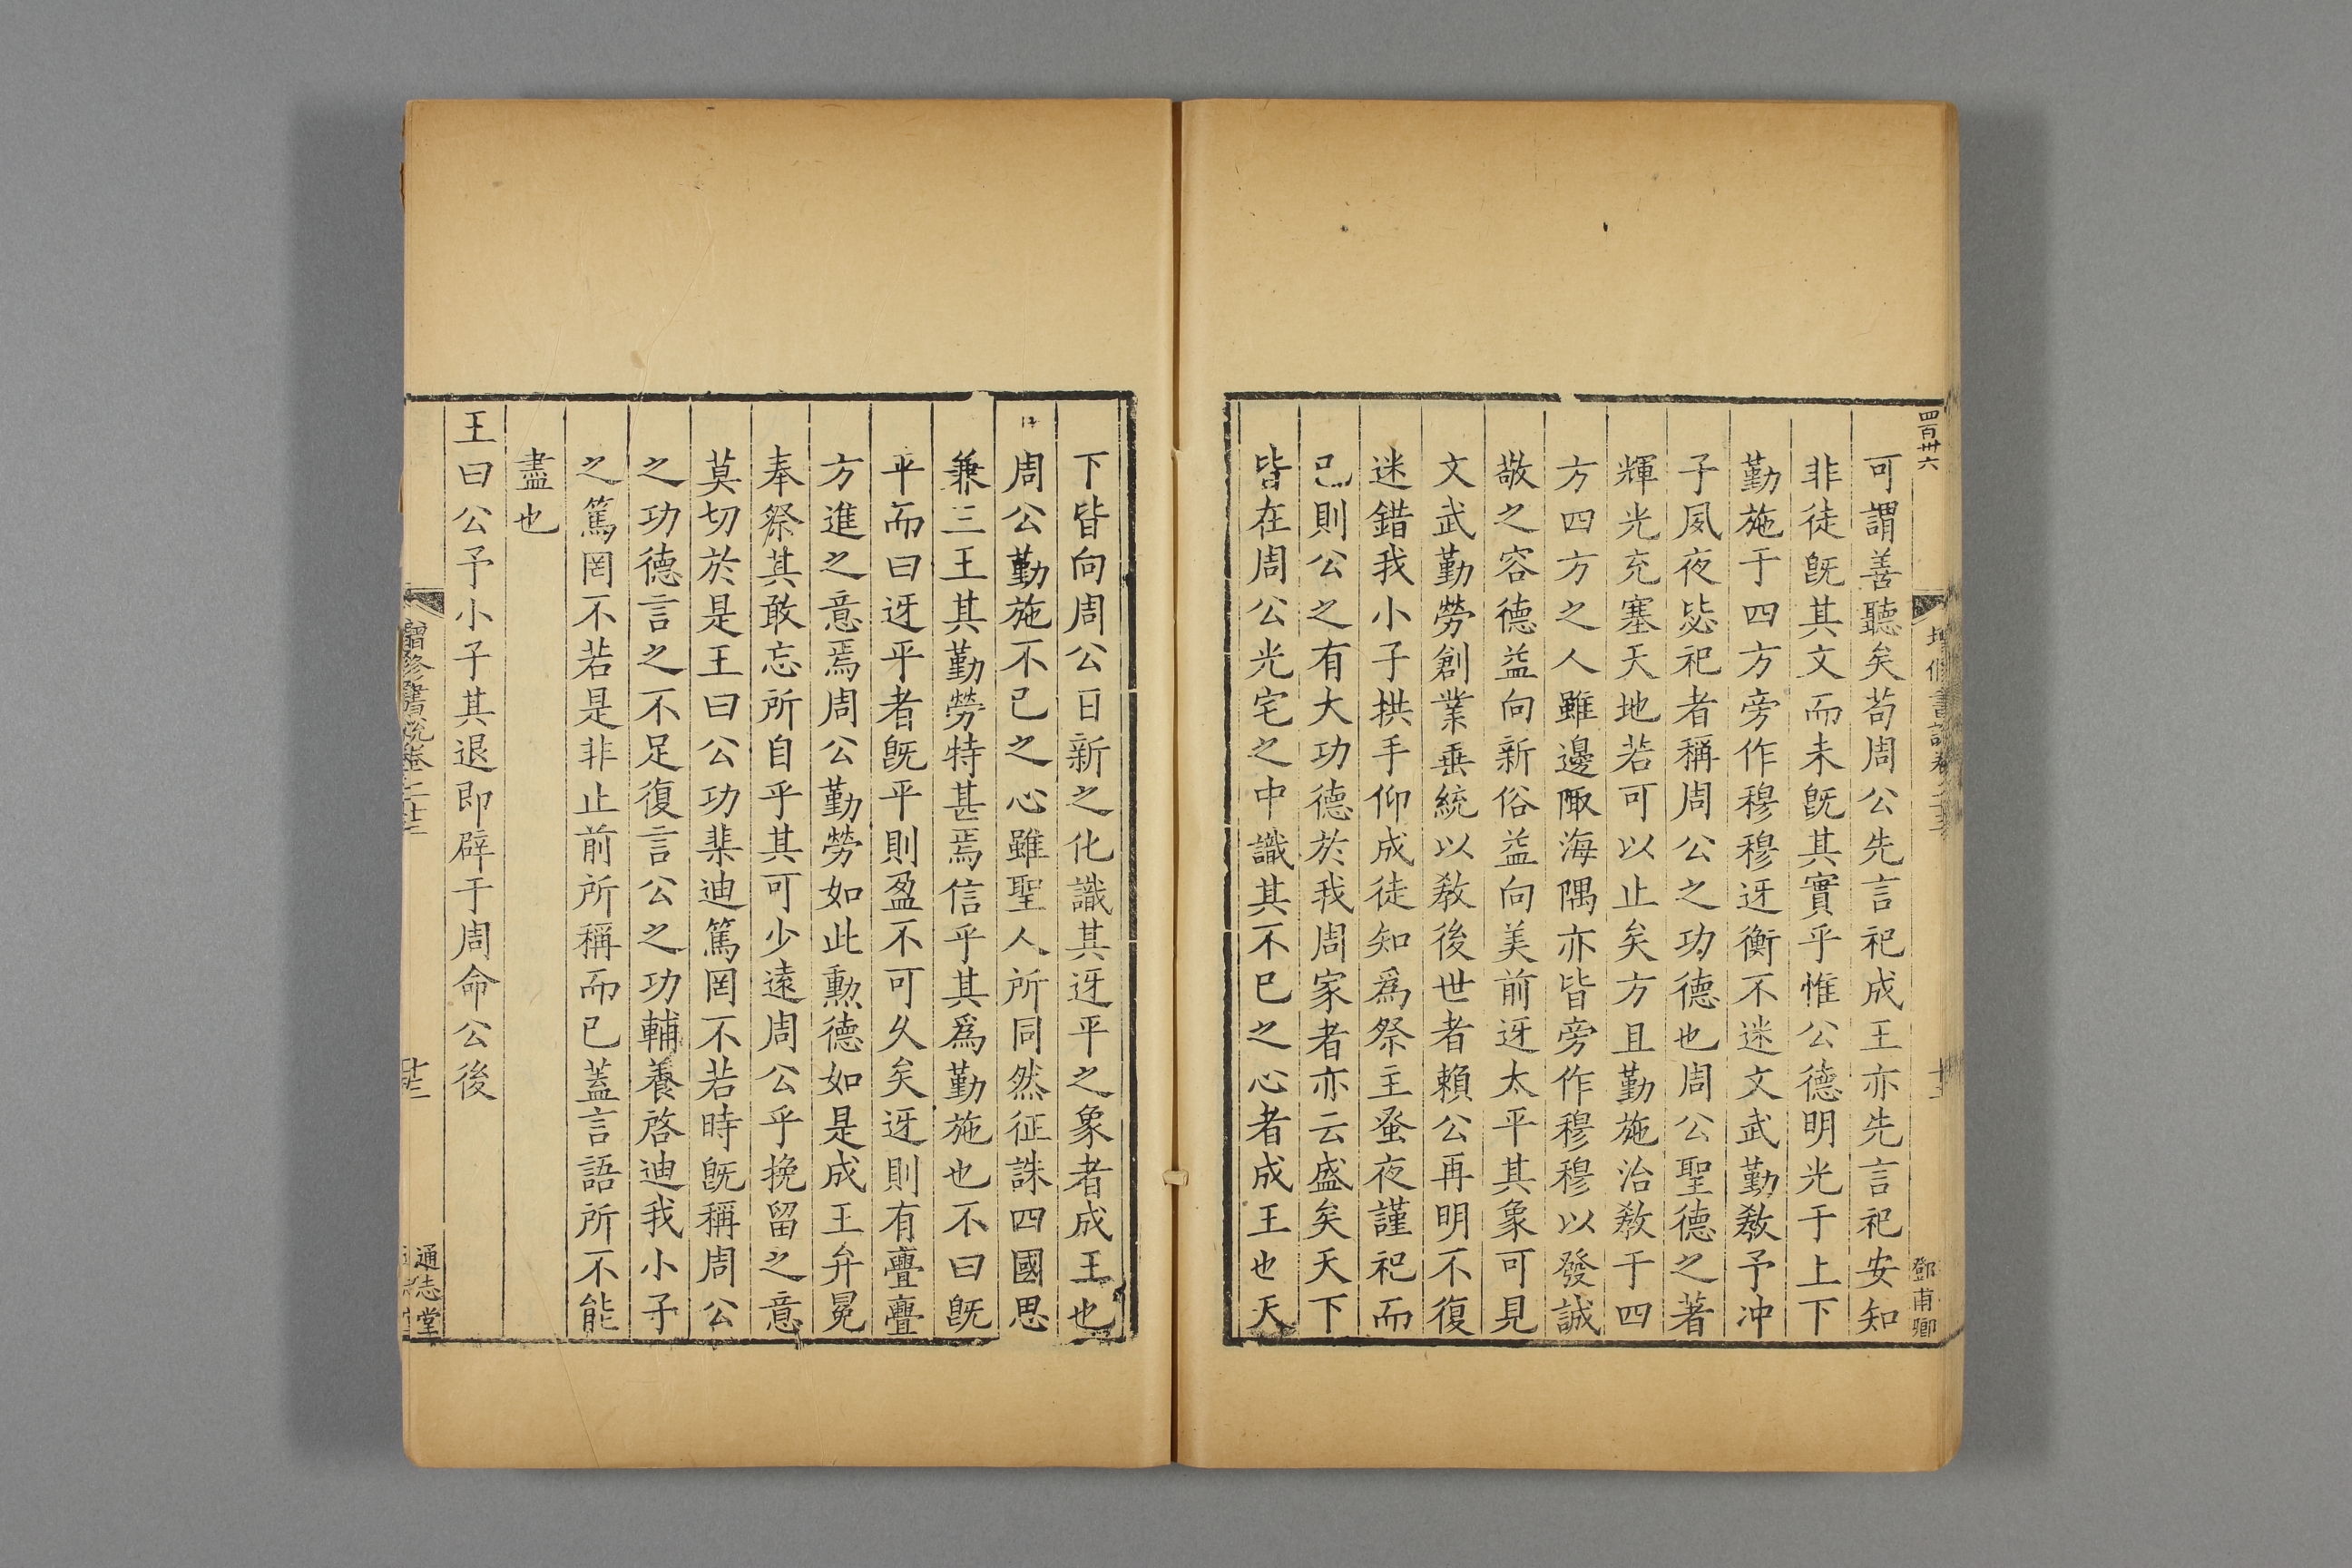 四百卅六
鄧甫卿
可謂善聽矣苟周公先言祀成王亦先言祀安知
非徒旣其文而未旣其實乎惟公德明光于上下
勤施于四方旁作穆穆迓衡不迷文武勤敎予冲
子夙夜毖祀者稱周公之功德也周公聖德之著
輝光充塞天地若可以止矣方且勤施治敎于四
方四方之人雖邊陬海隅亦皆旁作穆穆以發誠
敬之容德益向新俗益向美前迓太平其象可見
文武勤勞創業垂統以敎後世者賴公再明不復
迷錯我小子拱手仰成徒知爲祭主蚤夜謹祀而
已則公之有大功德於我周家者亦云盛矣天下
皆在周公光宅之中識其不已之心者成王也天
下皆向周公日新之化識其迓平之象者成王也
周公勤施不已之心雖聖人所同然征誅四國思
兼三王其勤勞特甚焉信乎其爲勤施也不曰旣
平而曰迓平者旣平則盈不可久矣迓則有亹亹
方進之意焉周公勤勞如此勲德如是成王弁冕
奉祭其敢忘所自乎其可少遠周公乎挽留之意
莫切於是王曰公功棐迪篤罔不若時旣稱周公
之功德言之不足復言公之功輔養啓迪我小子
之篤罔不若是非止前所稱而已蓋言語所不能
盡也
王曰公予小子其退即辟于周命公後
增修書說卷二十三
通志堂